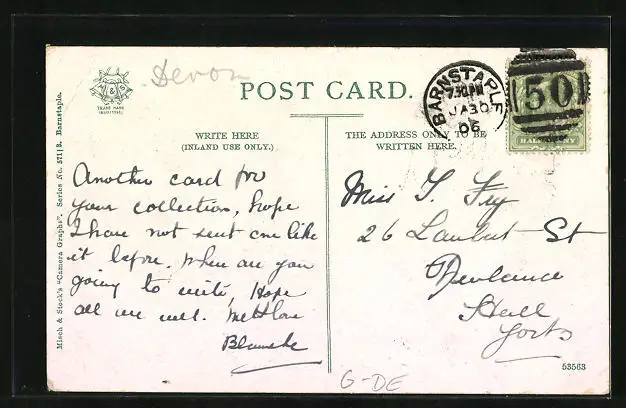 Devon
M & S
TRADE MARK
POST CARD.
BARNSTAPLE
7.30 PM
JA 30
06
50
HALFPENNY
WRITE HERE
(INLAND USE ONLY.)
THE ADDRESS ONLY TO BE
WRITTEN HERE.
Another card for
your collection, hope
I have not sent one like
it before. When are you
going to write, Hope
all are well. With love
Blanche
Miss T. Fry
26 Lambert St
Newland
Hull
Yorks
Misch & Stock's "Camera Graphs". Series No. 571/2. Barnstaple.
53563
G-DE